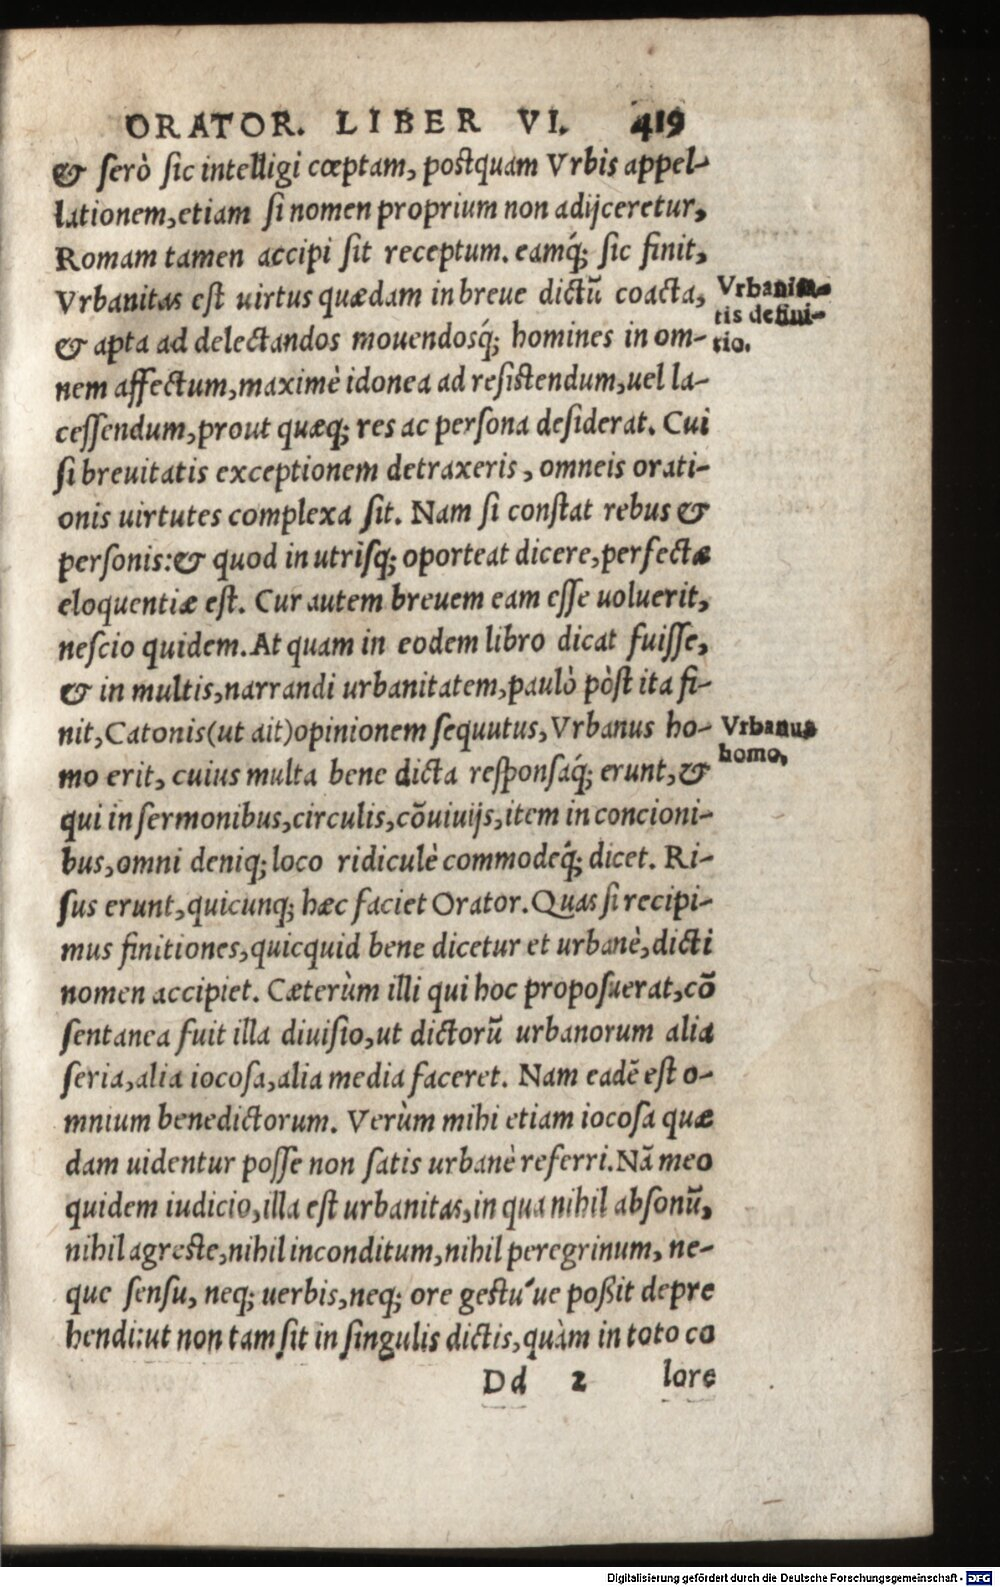 ORATOR. LIBER VI. 419
& serò sic intelligi cœptam, postquam Vrbis appel-
lationem, etiam si nomen proprium non adijceretur,
Romam tamen accipi sit receptum. eamq́; sic finit,
Vrbanitas est uirtus quædam in breue dictũ coacta,
Vrbanita-
tis defini-
tio.
& apta ad delectandos mouendosq́; homines in om-
nem affectum, maximè idonea ad resistendum, uel la-
cessendum, prout quæq; res ac persona desiderat. Cui
si breuitatis exceptionem detraxeris, omneis orati-
onis uirtutes complexa sit. Nam si constat rebus &
personis: & quod in utrisq; oporteat dicere, perfectæ
eloquentiæ est. Cur autem breuem eam esse uoluerit,
nescio quidem. At quam in eodem libro dicat fuisse,
& in multis, narrandi urbanitatem, paulò pòst ita fi-
nit, Catonis (ut ait) opinionem sequutus, Vrbanus ho-
Vrbanus
homo,
mo erit, cuius multa bene dicta responsaq́; erunt, &
qui in sermonibus, circulis, cõuiuijs, item in concioni-
bus, omni deniq; loco ridiculè commodeq́; dicet. Ri-
sus erunt, quicunq; hæc faciet Orator. Quas si recipi-
mus finitiones, quicquid bene dicetur et urbanè, dicti
nomen accipiet. Cæterùm illi qui hoc proposuerat, cõ
sentanea fuit illa diuisio, ut dictorũ urbanorum alia
seria, alia iocosa, alia media faceret. Nam eadẽ est o-
mnium benedictorum. Verùm mihi etiam iocosa quæ
dam uidentur posse non satis urbanè referri. Nã meo
quidem iudicio, illa est urbanitas, in qua nihil absonũ,
nihil agreste, nihil inconditum, nihil peregrinum, ne-
que sensu, neq; uerbis, neq; ore gestu'ue poßit depre
hendi: ut non tam sit in singulis dictis, quàm in toto co
Dd 2 lore
Digitalisierung gefördert durch die Deutsche Forschungsgemeinschaft - DFG